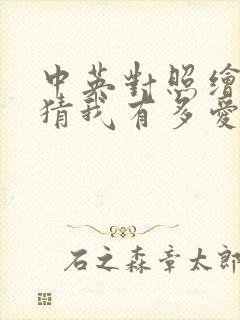 中英對照繪
猜我有多愛
石之森章太郎